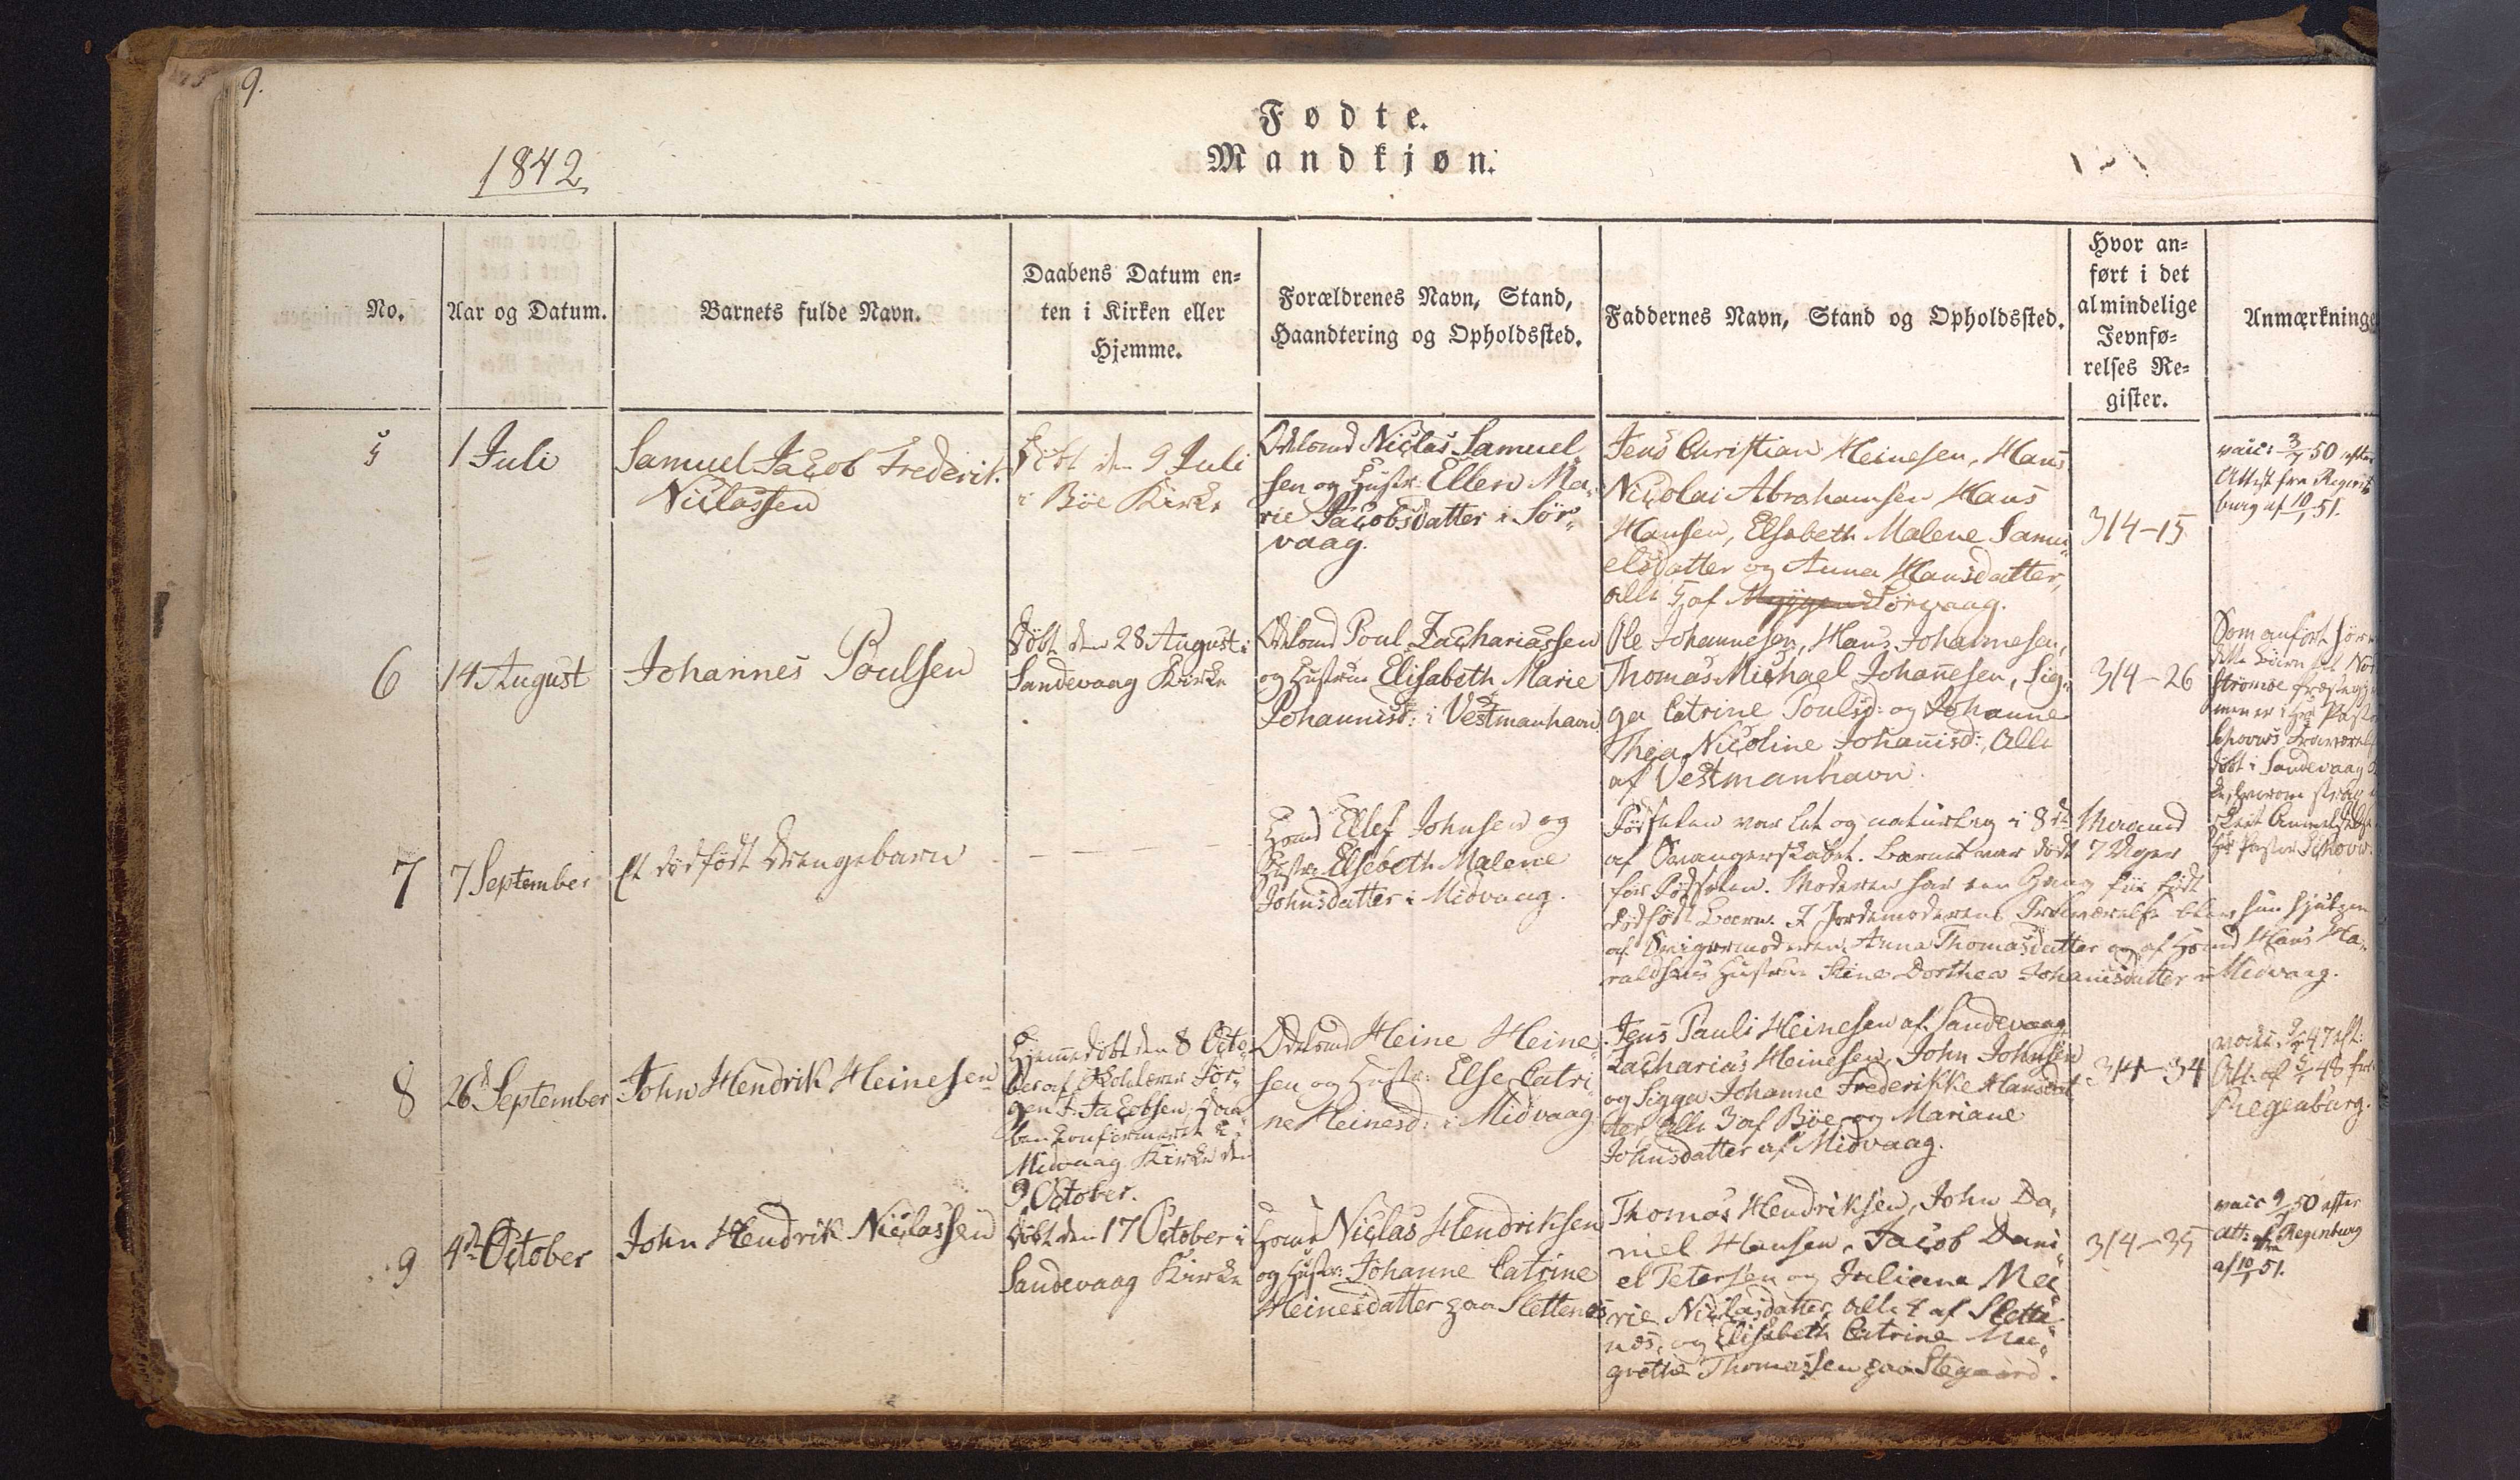 9.
Fødte.
Mandkjøn.
1842
No.
Aar og Datum.
Barnets fulde Navn.
Daabens Datum en-
ten i Kirken eller
Hjemme.
Forældrenes Navn, Stand,
Haandtering og Opholdssted.
Faddernes Navn, Stand og Opholdssted.
Hvor an-
ført i det
almindelige
Jevnfø-
relses Re-
gister.
Anmærkninge
5
1 Juli
Samuel Jacob Frederik
Niclassen
Døbt den 9 Juli
i Böe Kirke
Odelsmd Niclas Samuel-
sen og Hustr: Ellen Ma-
rie Jacobsdatter i Sör-
vaag.
Jens Christian Heinesen, Hans
Nicolai Abrahamsen Hans
Hansen, Elsebeth Malene Samu-
elsdatter og Anna Hansdatter,
alle 5 af Sörvaag.
314-15
vacc: 3/7 50 efter
Attest fra Regens-
burg af 10/1 51.
6
14 August
Johannes Poulsen
Döbt den 28 August i
Sandevaag Kirke
Odelsmd Poul Zachariassen
og Hustrue Elisabeth Marie
Johannisd: i Vestmanhavn
Ole Johannesen, Hans Johannesen,
Thomas Michael Johañesen, Sig-
ga Catrine Poulsd: og Johanne
Thea Nicoline Johañisd:, Alle
af Vestmanhavn.
314-26
Som anfört hörer
dette Barn til Nor
Strömöe
döbt i Sandevaag
7
7 September
Et dödfödt Drengebarn
Hmd Ellef Johnsen og
Hustr: Elsebeth Malene
Johnsdatter i Midvaag.
Födselen var let og naturlig i 8de Maaned
af Svangerskabet. Barnet var dödt 7 Uger
för Födselen. Moderen har een Gang för födt
dödfödt Barn. I Jordemoderens Fraværelse blev hun hjulpen
af Svigermoderen Anna Thomasdatter og af Hmd Hans Ha-
raldsens Hustrue Stine Dorthea Johanisdatter i Midvaag.
8
26 September
John Hendrik Heinesen
Hjemmedöbt den 8 Octo-
ber af Skolelærer Jör-
gen F. Jacobsen, Daa-
ben confirmeret i
Midvaag Kirke den
9 October.
Odelsmd Heine Heine-
sen og Hustr: Else Catri-
ne Heinesd: i Midvaag
Jens Pauli Heinesen af Sandevaag
Zacharias Heinesen, John Johnsen
og Sigga Johanne Frederikke Hansdat-
ter, Alle 3 af Böe og Mariane
Johnsdatter af Midvaag.
314-34
47 eft:
Att: af 48 fra
Regenburg.
9
4de October
John Hendrik Niclassen
Döbt den 17 October i
Sandevaag Kirke
Hmd Niclas Hendriksen
og Hustr: Johanne Catrine
Heinesdatter paa Slettenæs
Thomas Hendriksen, John Da-
niel Hansen, Jacob Dani-
el Petersen og Juliane Ma-
rie Niclasdatter, alle 4 af Slette-
næs, og Elisabeth Catrine Mar-
grethe Thomassen paa Stegaard.
314-35
vacc 9/7 50 efter
Att: fra Regenburg
af 10/1 51.